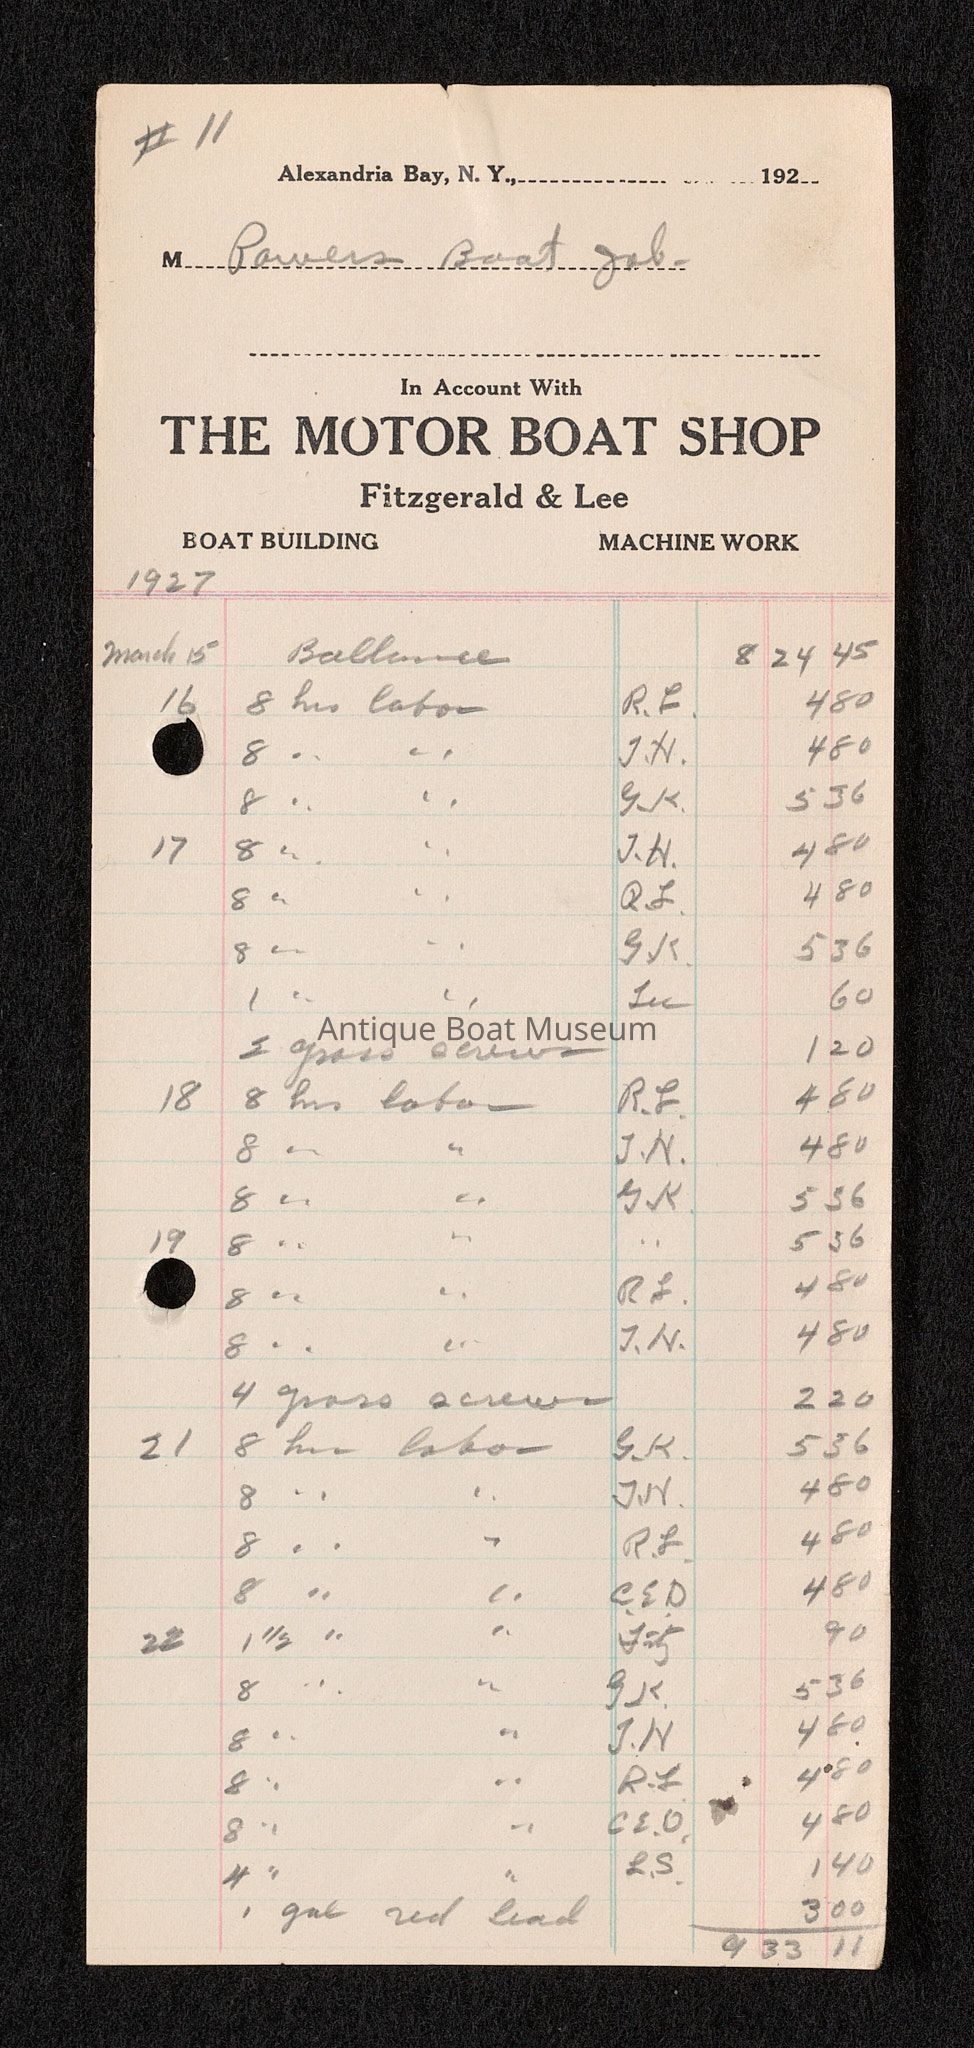 # 11
Alexandria Bay, N. Y., 192
M Powers Boat Job-
In Account With
THE MOTOR BOAT SHOP
Fitzgerald & Lee
BOAT BUILDING MACHINE WORK
1927
March 15 Ballance 8 24 45
16 8 hrs labor R.L. 4 80
8 " " J.H. 4 80
8 " " G.K. 5 36
17 8 " " J.H. 4 80
8 " " R.L. 4 80
8 " " G.K. 5 36
1 " " Lee 60
Antique Boat Museum
2 gross screws 1 20
18 8 hrs labor R.L. 4 80
8 " " J.H. 4 80
8 " " G.K 5 36
19 8 " " " 5 36
8 " " R.L. 4 80
8 " " J.H. 4 80
4 gross screws 2 20
21 8 hrs labor G.K. 5 36
8 " " J.H. 4 80
8 " " R.L. 4 80
8 " " C.E.D 4 80
22 1 1/2 " " Fitz 90
8 " " G.K. 5 36
8 " " J.H 4 80
8 " " R.L 4 80
8 " " C.E.D. 4 80
4 " " L.S. 1 40
1 gal red lead 3 00
9 33 11